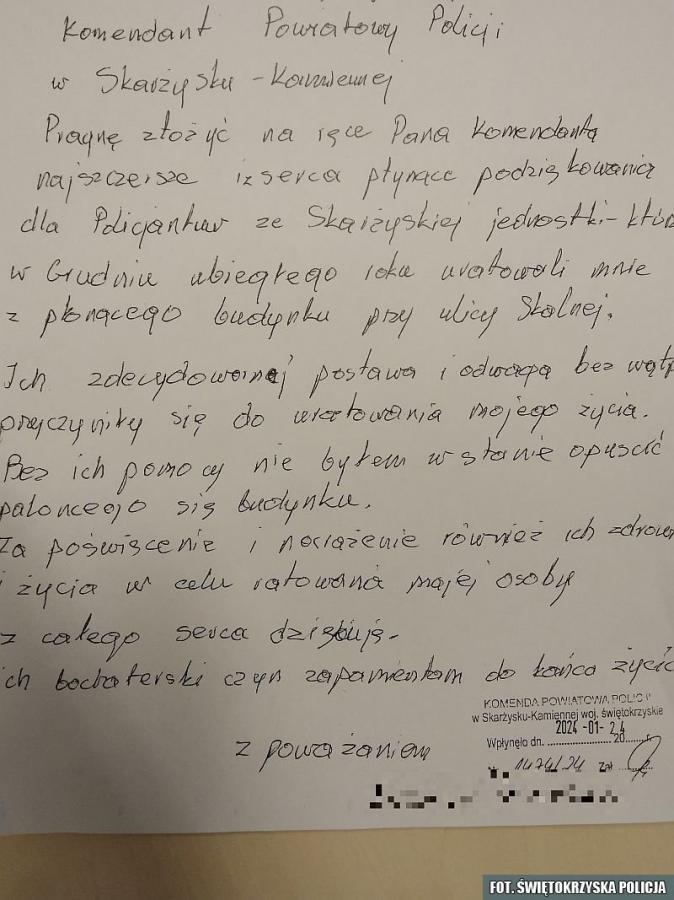 Komendant Powiatowy Policji
w Skarżysku-Kamiennej
Pragnę złożyć na ręce Pana Komendanta
najszczersze iz serca płynące podziękowania
dla Policjantuw ze Skarżyskiej jednostki-któr
w Grudniu ubiegłego roku uratowali mnie
z płonącego budynku przy ulicy Skalnej.
Ich zdecydowanej postawa i odwagą bez wątp
przyczyniły się do uratowania mojego życia.
Bez ich pomocy nie byłem w stanie opuścić
paloncego się budynku.
Za poświęcenie i narażenie również ich zdrow
i życia w celu ratowana majej osoby
z całego serca dziękuję.
ich bochaterski czyn zapamientam do końca życia
KOMENDA POWIATOWA POLICJI
w Skarżysku-Kamiennej woj. świętokrzyskie
2024 -01- 24
Wpłynęło dn. .................... 20......r.
1474/24 Zał
z poważaniem
FOT. ŚWIĘTOKRZYSKA POLICJA